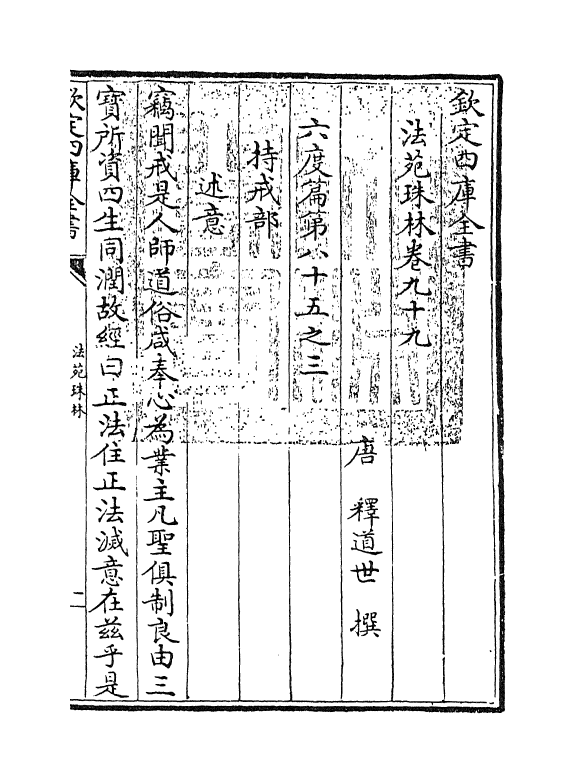 欽定四庫全書
法苑珠林卷九十九
唐 釋道世 撰
六度篇第八十五之三
持戒部
述意
竊聞戒是人師道俗咸奉心為業主凡聖俱制良由三
寶所資四生同潤故經曰正法住正法滅意在茲乎是
欽定四庫全書
法苑珠林